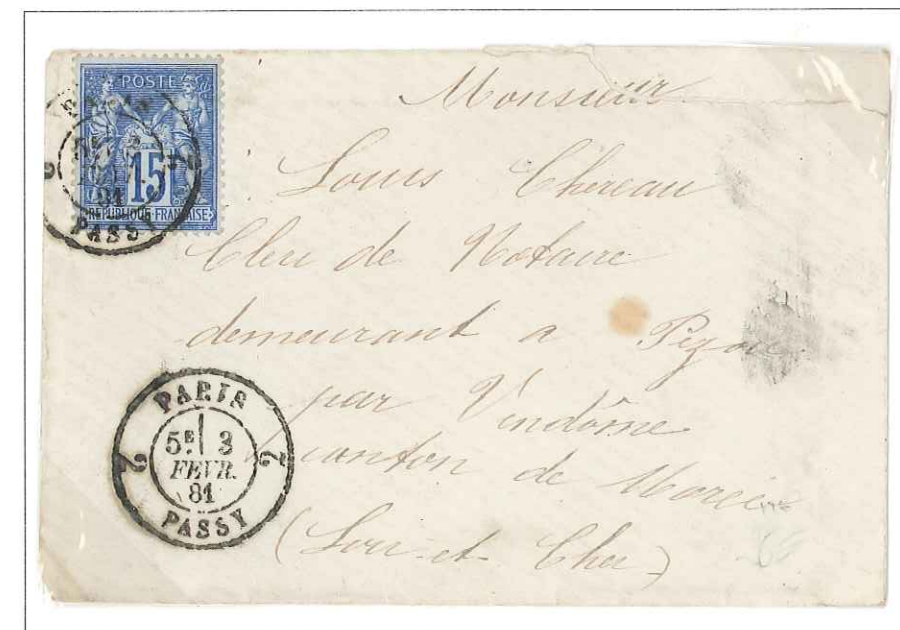 POSTE
15
REPUBLIQUE FRANÇAISE
PASSY
81
Monsieur
Louis Chereau
Clerc de Notaire
demeurant a Pezou
par Vendôme
canton de Morée
(Loir et Cher)
PARIS
5E 3
FEVR.
81
2 2
PASSY